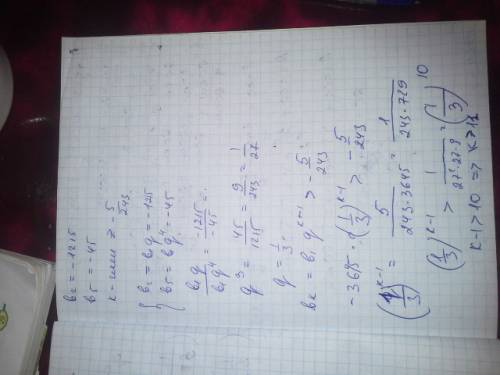 b₂ = -1215
b₅ = -45
к - член ≥ -5/243
{ b₂ = b₁q = -1215
b₅ = b₁q⁴ = -45
b₁q / b₁q⁴ = -1215 / -45 =
q³ = 45/1215 = 9/243 = 1/27
q = 1/3
bк = b₁ q^(к-1) > -5/243
-3645 · (1/3)^(к-1) > -5/243
(1/3)^(к-1) = 5/(243·3645) = 1/(243·729)
(1/3)^(к-1) > 1/(27·27·9) = (1/3)^10
к-1 > 10 => к > 11